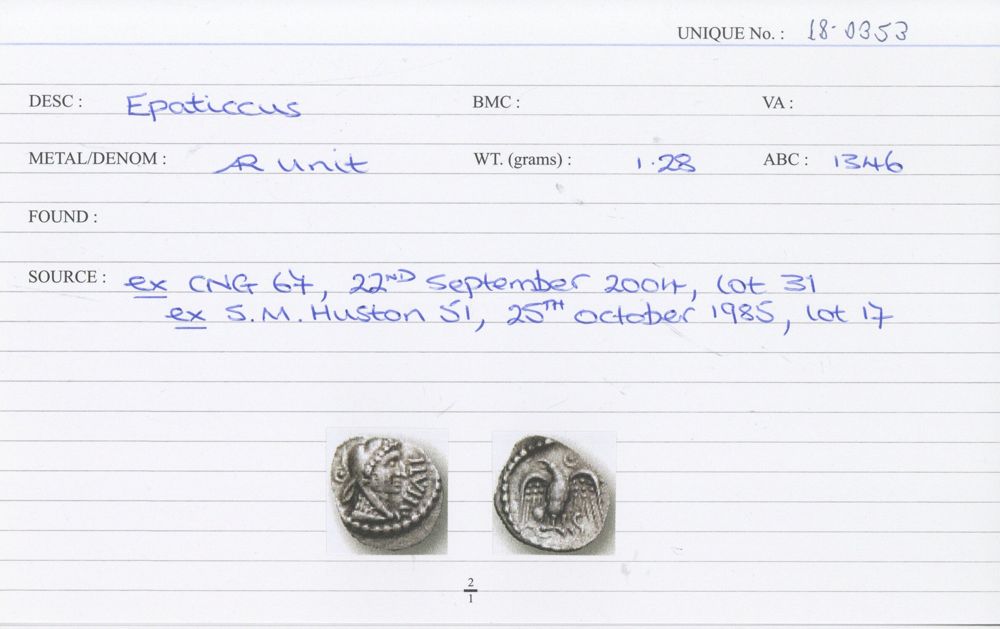 UNIQUE No. : 18-0353
DESC : Epaticcus BMC : VA :
METAL/DENOM : AR unit WT. (grams) : 1.28 ABC : 1346
FOUND :
SOURCE : ex CNG 67, 22ND September 2004, lot 31
ex S.M. Huston 51, 25TH October 1985, lot 17
2
1